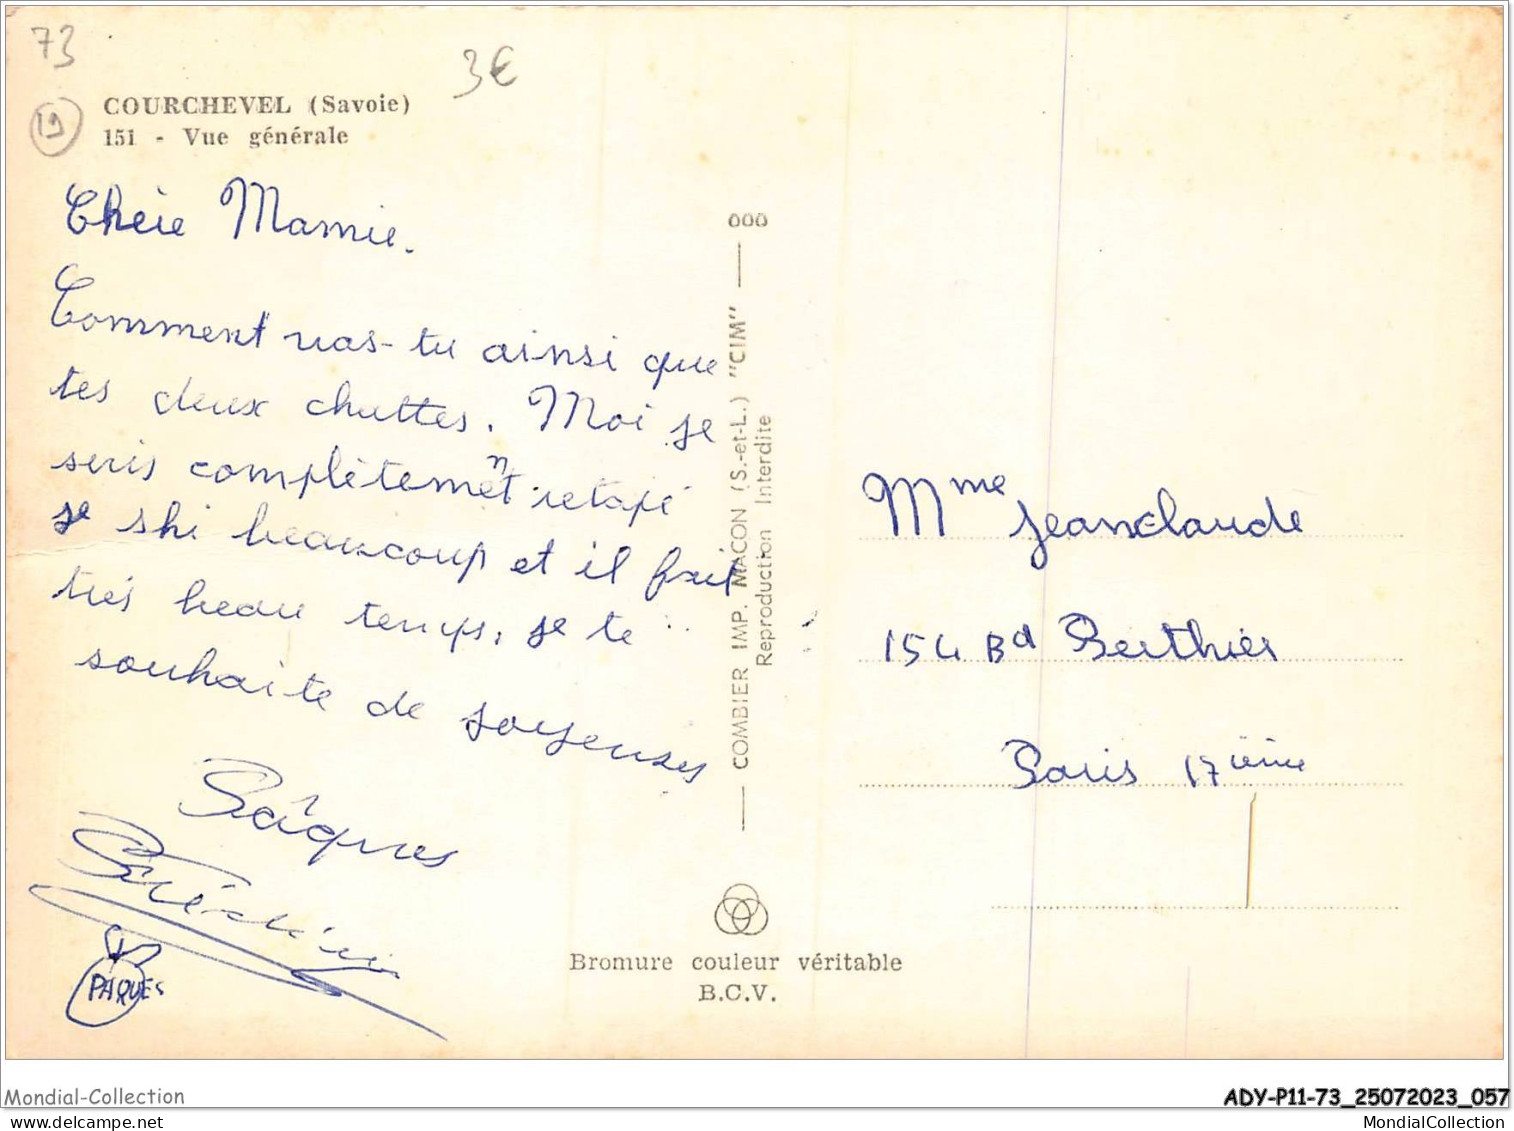 73
3€
19
COURCHEVEL (Savoie)
151 - Vue générale
Chère Mamie.
Comment vas-tu ainsi que
tes deux chattes. Moi je
suis complètement retapé
je ski beaucoup et il fait
très beau temps, je te
souhaite de joyeuses
Pâques
Frédéric
PAQUES
000
COMBIER IMP. MACON (S.-et-L.) "CIM"
Reproduction Interdite
Mme Jeanclaude
154 Bd Berthier
Paris 17ième
Bromure couleur véritable
B.C.V.
Mondial-Collection
ADY-P11-73_25072023_057
MondialCollection.com
MondialCollection